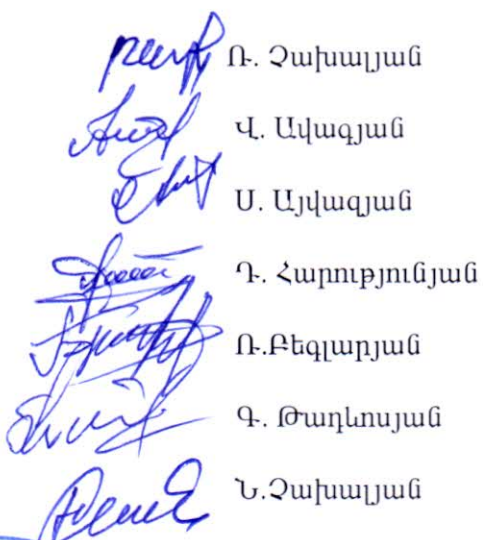 Ռ. Չախալյան
Վ. Ավագյան
Ս. Այվազյան
Դ. Հարությունյան
Ռ.Բեգլարյան
Գ. Թադևոսյան
Ն.Չախալյան